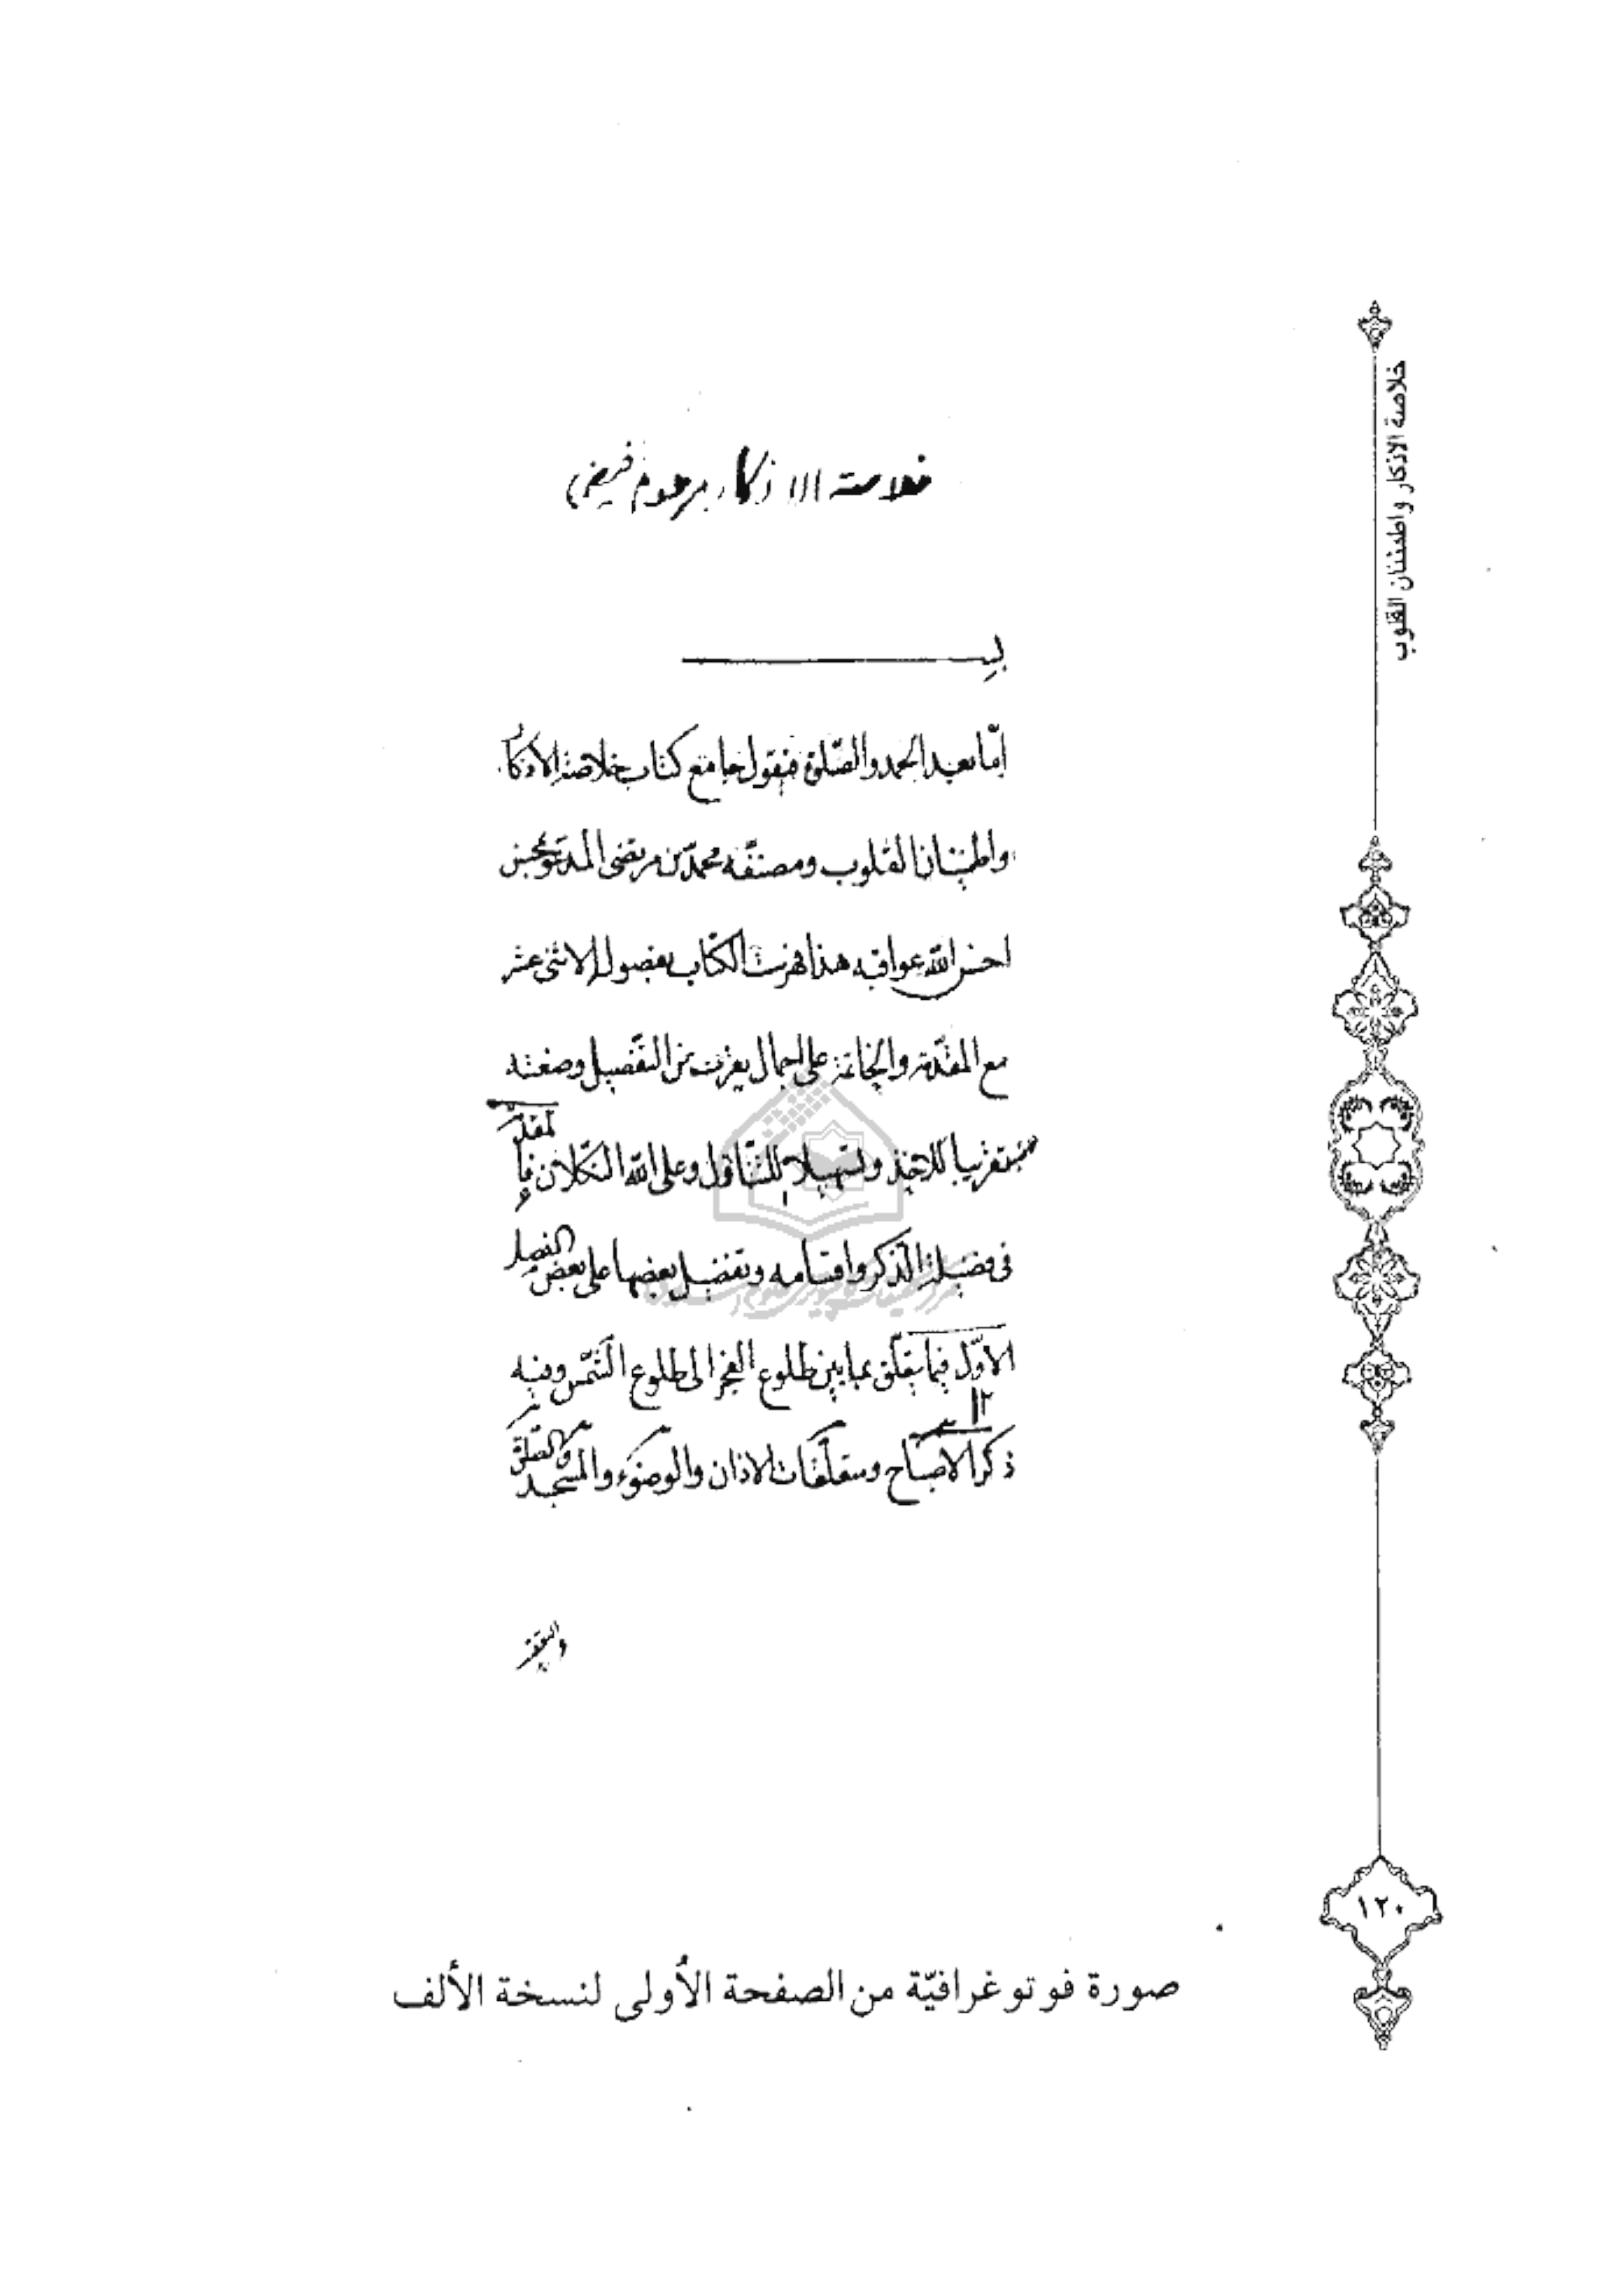 خلاصة الاذكار واطمئنان القلوب
خلاصة الاذكار مرحوم فيض
بسم
امّا بعد الحمد والصّلوة فيقول جامع كتاب خلاصة الاذكار
واطمينان القلوب ومصنّفه محمّد بن مرتضى المدعو بمحسن
احسن الله عواقبه هذا فهرست الكتاب بفصوله الاثنى عشر
مع المقدّمة والخاتمة على اجمال يعرب عن التفصيل وضعته
تقريبا للاخذ وتسهيلا للتناول وعلى الله التكلان المقدّمة
فى فضيلة الذكر واقسامه وتفضيل بعضها على بعض الفصل
الاوّل فيما يتعلّق بما بين طلوع الفجر الى طلوع الشّمس وفيه
١٢
ذكر الاصباح ومتعلّقات الاذان والوضوء والمسجد والصّلوة
والتعقيب
١٢٠
صورة فوتوغرافيّة من الصفحة الأولى لنسخة الألف